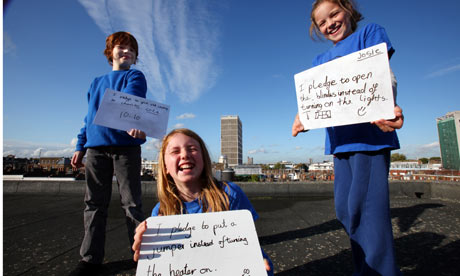 I pledge to
10:10
Josie
I pledge to open
the blinds instead of
turning on the lights.
I pledge to put a
jumper instead of turning
the heater on.